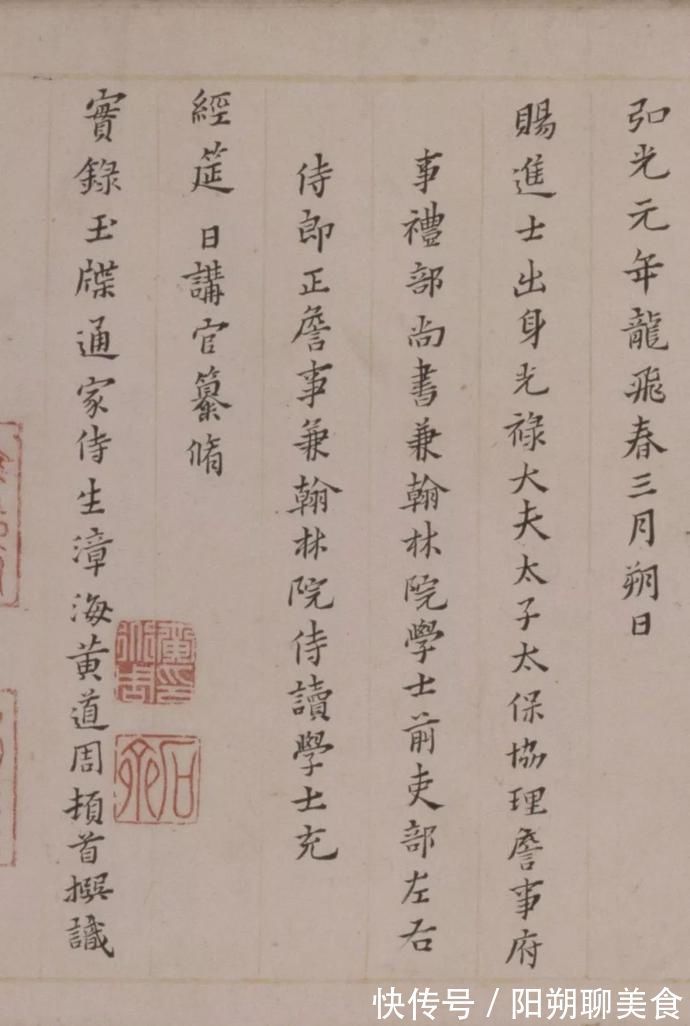 弘光元年龍飛春三月朔日
賜進士出身光祿大夫太子太保協理詹事府
事禮部尚書兼翰林院學士前吏部左右
侍郎正詹事兼翰林院侍讀學士充
經筵日講官纂脩
實錄玉牒通家侍生漳海黃道周頓首撰識
黃道周印
石齋
快传号/阳朔聊美食